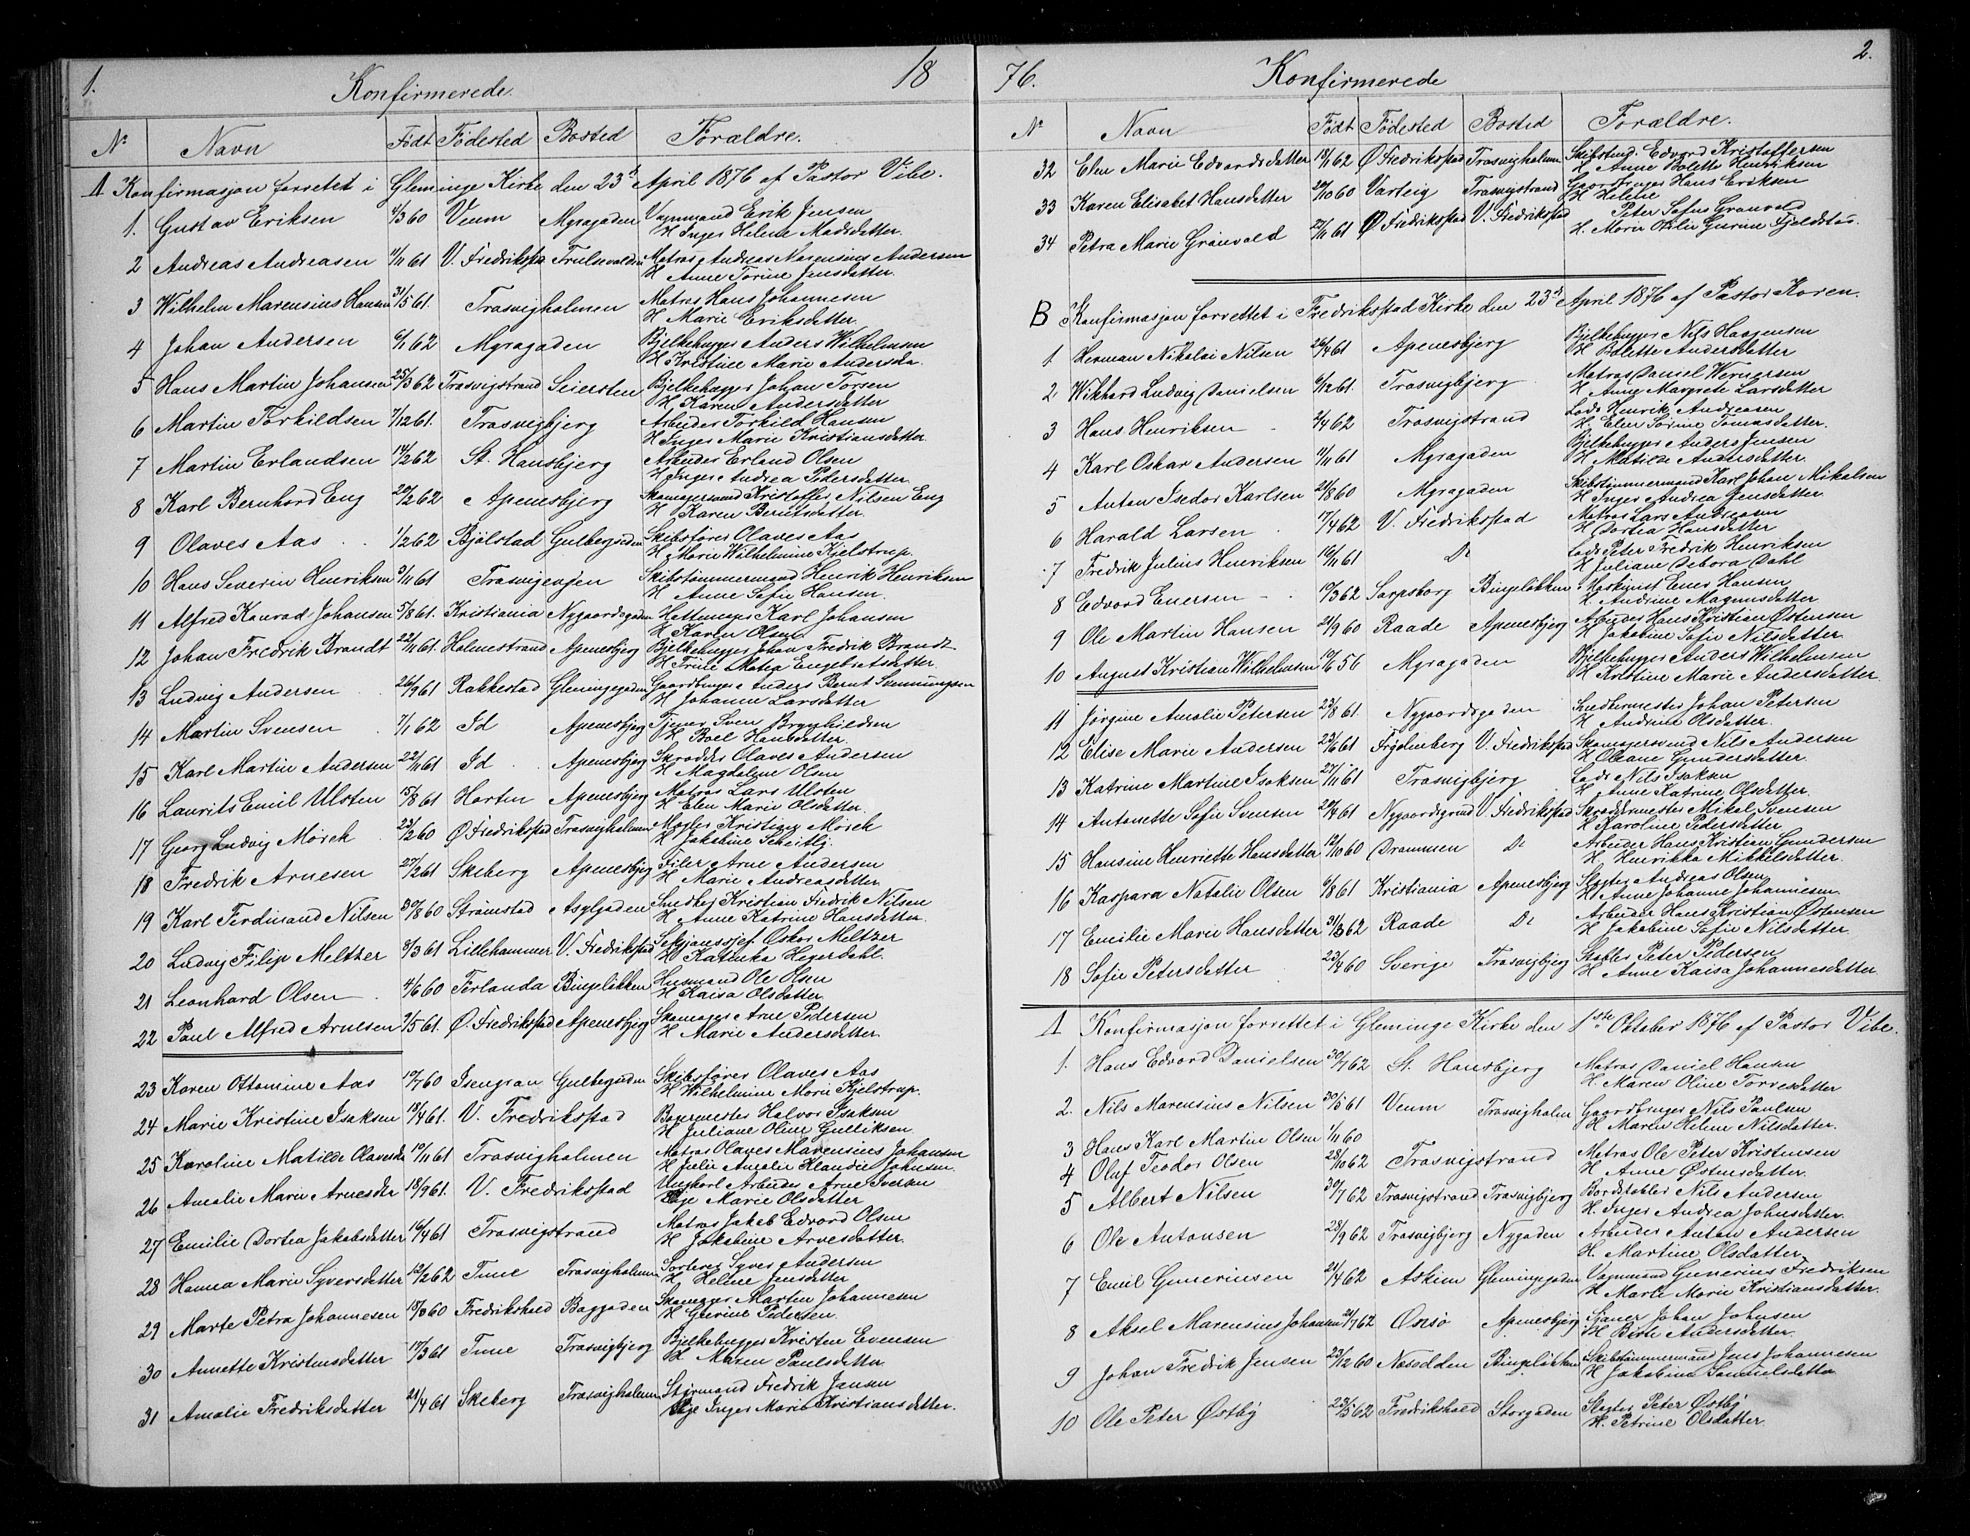 1. 18
Konfirmerede.
No Navn Født Fødested Bosted Forældre.
A Konfirmasjon forretet i Gleminge Kirke den 23de April 1876 af Pastor Vibe.
1. Gustav Eriksen 4/3 60 Veum Myragaden Vognmand Erik Jensen
H Inger Helene Madsdatter.
2 Andreas Andreasen 11/11 61 V. Fredriksstad Matros Andreas Andersen
H Anne Torine Jensdatter.
3 Wilhelm Marensius Hansen 31/5 61. Trosvigholmen Matros Hans Johannesen
H Marie Eriksdatter.
4 Johan Andersen 6/1 62 Myragaden Bjelkehugger Anders Wilhelmsen
H Kristine Marie Andersda.
5 Hans Martin Johansen 25/3 62 Trosvigstrand Seiersten Bjelkehugger Johan Torsen
H Karen Andersdatter
6 Martin Torkildsen 7/12 61. Trosvigbjerg Arbeider Torkild Hansen
H Inger Marie Kristiansdatter.
7 Martin Erlandsen 14/2 62 St. Hansbjerg Arbeider Erland Olsen
H Inger Andrea Pedersdatter.
8 Karl Bernhard Eng 20/2 62 Apenesbjerg Skomagersvend Kristoffer Nilsen Eng
H Karen Berntsdatter.
9 Olaves Aas 1/2 62 Bjølstad Gulbergsiden Skibsfører Olaves Aas
H Marie Wilhelmine Kjelstrup.
10 Hans Severin Henriksen 3/11 61 Trosvigengen Skibstømmermand Henrik Henriksen
H Anne Sofie Hansen.
11 Alfred Konrad Johansen 5/8 61. Kristiania Nygaardsgaden Hattemager Karl Johansen
H Karen Olsen
12 Johan Fredrik Brandt 22/11 61. Holmestrand Apenesbjerg Bjelkehugger Johan Fredrik Brandt
H Trine Matea Engebretsdatter.
13 Ludvig Andersen 26/9 61 Rakkestad Glemingegaden Gaardbruger Anders Bernt
H Johanne Larsdatter
14 Martin Svensen 7/1 62 Id Apenesbjerg Tjener Sven Brynhildsen
H Boel Hansdatter.
15 Karl Martin Andersen 22/11 61 Id Apenesbjerg Skrædder Olaves Andersen
H Magdalene Olsen
16 Laurits Emil Ulsten 15/8 61 Horten Apenesbjerg Matros Lars Ulsten
H Elen Marie Olsdatter.
17 Georg Ludvig Mørch 23/2 60 Ø Fredriksstad Trosvigholmen Mægler Kristian Mørch
H Jakobine Scheitlj.
18 Fredrik Arnesen 27/2 61 Skeberg Apenesbjerg Filer Arne Andersen
H Marie Andreasdatter
19 Karl Ferdinand Nilsen 30/8 60 Strømstad Asylgaden Kristian Fredrik Nilsen
H Anne Katrine Hansdatter.
20 Ludvig Filip Meltzer 8/3 61 Lillehammer V. Fredriksstad Seksjonssjef Oskar Meltzer
H Katinka Hegerdahl.
21 Leonhard Olsen 4/6 60 Ferlanda Bingeløkken Husmand Ole Olsen
H Kaisa Olsdatter
22 Paul Alfred Arnesen 2/5 61. Ø. Fredriksstad Apenesbjerg Skomager Arne Pedersen
H Marie Andersdatter.
23 Karen Ottomine Aas 19/7 60 Isengran Gulbergsiden Skibsfører Olaves Aas
H Wilhelmine Marie Kjelstrup.
24 Marie Kristine Isaksen 19/4 61. V. Fredriksstad Bagermester Halvor Isaksen
H Juliane Oline Gulliksen.
25 Karoline Matilde Olavesda 19/11 61 Trosvigholmen Matros Olaves Marensius Johansen
H Julie Amalie Klaudie Johnsen.
26 Amalie Marie Arnesdtr 18/9 61. V. Fredriksstad Ungkarl Arbeider Arne Iversen
Pige Marie Olsdatter.
27 Emilie Dortea Jakobsdatter 16/4 61 Trosvigstrand Matros Jakob Edvard Olsen
H Jakobine Arvesdatter.
28 Hanna Marie Syversdatter 12/2 62 Tune Trosvigholmen Sorterer Syver Andersen
H Helene Jensdatter
29 Marte Petra Johannesen 18/3 60 Fredrikshald Baggaden Skomager Martin Johannesen
H Gurine Pedersen.
30 Annette Kristensdatter 17/3 61 Tune Trosvigbjerg Bjelkehugger Kristen Evensen
H Maren Paulsdatter.
31 Amalie Fredriksdatter 21/4 61 Skeberg Trosvigholmen Styrmand Fredrik Jansen
Pige Inger Marie Kristiansdatter.
76. 2.
Konfirmerede
No Navn Født Fødested Bosted Forældre.
32 Elen Marie Edvardsdatter 18/1 62 Ø Fredriksstad Trosvigholmen Skibstmd. Edvard Kristoffersen
H Anne Bolette Henriksen
33 Karen Elisabet Hansdatter 29/10 60 Varteig Trosvigstrand Gaardbruger Hans Eriksen
H Helene
34 Petra Marie Grönvold 27/11 61 Ø Fredriksstad V. Fredriksstad Peter Sofus Grønvold
H. Maren Otilie Gurine Fjeldstad.
B Konfirmasjon forrettet i Fredriksstad Kirke den 23de April 1876 af Pastor Koren.
1 Herman Nikolai Nilsen 26/4 61 Apenesbjerg Bjelkehugger Nils Haagensen
H Bolette Andersdatter
2 Wikhard Ludvig Danielsen 9/12 61. Trosvigbjerg Matros Daniel Wernersen
H Anne Margrete Larsdatter
3 Hans Henriksen 2/4 62 Trosvigstrand Lods Henrik Andreasen
H. Elen Sorine Tomasdatter.
4 Karl Oskar Andersen 11/11 61 Myragaden Bjelkehugger Anders Jensen
H Matilde Andersdatter.
5 Anton Isedor Karlsen 21/8 60 Myragaden Skibstømmermand Karl Johan Mikalsen
H Inger Andrea Jensdatter.
6 Harald Larsen 17/4 62 V. Fredriksstad Matros Lars Andreasen
H Dortea Hansdatter
7 Fredrik Julius Henriksen 16/11 61 Do Lods Peter Fredrik Henriksen
H Juliane Debora Dahl
8 Edvard Enersen 19/3 62 Sarpsborg Bingeløkken Maskinist Ener Hansen
H. Andrine Magnusdatter
9 Ole Martin Hansen 21/9 60 Raade Apenesbjerg Arbeider Hans Kristian Østensen
H Jakobine Sofie Nilsdatter.
10 August Kristian Wilhelmsen 12/6 56 Myragaden Bjelkehugger Anders Wilhelmsen
H Kristine Marie Andersdatter.
11 Jørgine Amalie Petersen 23/8 61. Nygaardsgaden Snedkermester Johan Petersen
H Andrine Olsdatter.
12 Elise Marie Andersen 23/6 61 V. Fredriksstad Skomagersvend Nils Andersen
H Oleane Gundersdatter.
13 Katrine Martine Isaksen 27/11 61 Trosvigbjerg Lods Nils Isaksen
H Anne Katrine Olsdatter.
14 Antonette Sofie Svensen 29/4 61 Nygaardsgrund V. Fredriksstad Skræddermester Mikal Svensen
H Karoline Pedersdatter.
15 Hansine Henriette Hansdatter 12/10 60 Drammen Do Arbeider Hans Kristian Gundersen
H Henrikka Mikkelsdatter.
16 Kaspara Natalie Olsen 6/8 61 Kristiania Apenesbjerg Slagter Andreas Olsen
H Anne Johanne Johannesen.
17 Emilie Marie Hansdatter 31/3 62 Raade Do Arbeider Hans Kristian Østensen
H Jakobine Sofie Nilsdatter.
18 Sofie Petersdatter 23/4 60 Sverige Trosvigbjerg Stabler Peter Pedersen
H Anne Kaisa Johannesdatter.
A Konfirmasjon forrettet i Gleminge Kirke den 1ste Oktober 1876 af Pastor Vibe.
1. Hans Edvard Danielsen 30/7 62 St. Hansbjerg Matros Daniel Hansen
H. Maren Oline Torvesdatter
2. Nils Marensius Nilsen 30/5 61 Veum Trosvigholm Gaardbruger Nils Paulsen
H Maren Helene Nilsdatter.
3 Hans Karl Martin Olsen 1/11 60
4 Oluf Teodor Olsen 28/10 62 Trosvigstrand Matros Ole Peter Kristensen
H Anne Østensdatter.
5 Albert Nilsen 30/7 62 Trosvigstrand Trosvigbjerg Bordstabler Nils Andersen
H. Inger Andrea Johnsdatter.
6 Ole Antonsen 28/9 62 Trosvigbjerg Nygaden Arbeider Anton Andersen
H. Martine Olsdatter
7 Emil Gunerinsen 21/4 62 Askim Glemingegaden Vognmand Gunerius Fredriksen
H Marte Marie Kristiansdatter.
8 Aksel Marensius Johansen 21/7 62 Onsø Apenesbjerg Johan Johnsen
H Berte Andersdatter.
9 Johan Fredrik Jensen 23/12 60 Næsodden Bingeløkken Skibstømmermand Jens Johannesen
H Jakobine Samuelsdatter
10 Ole Peter Østby 23/5 62 Fredrikshald Storgaden Slagter Peter Østby
H. Petrine Olsdatter.